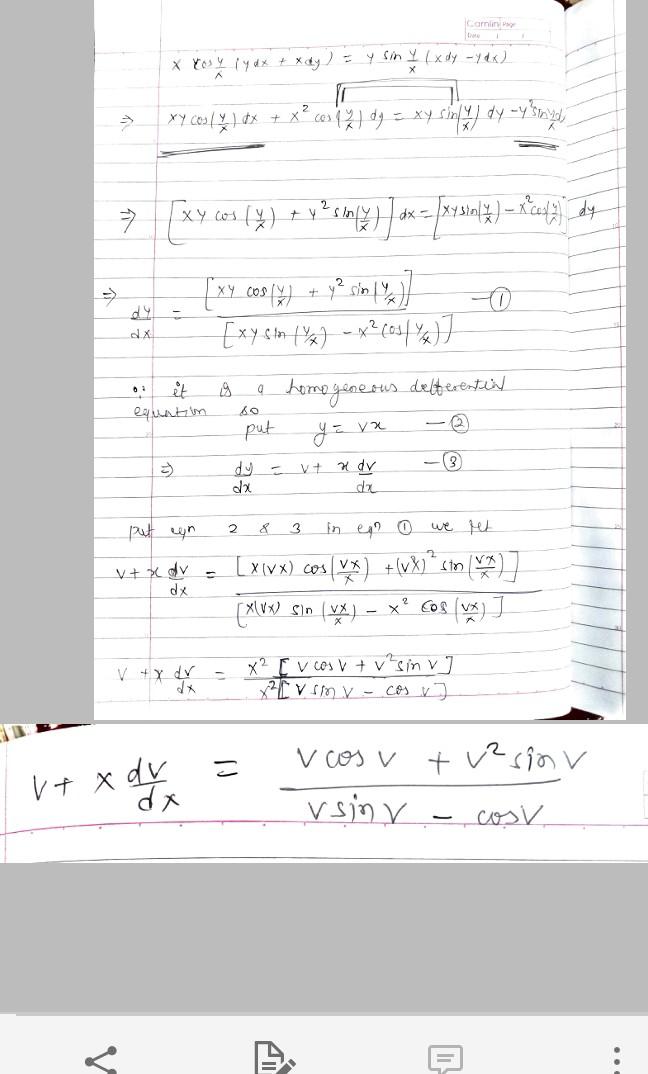 Camlin Page
Date / /
x cos y/x (ydx + xdy) = y sin y/x (xdy - ydx)
⇒ xy cos(y/x) dx + x² cos(y/x) dy = xy sin(y/x) dy - y² sin y/x d
⇒ [xy cos(y/x) + y² sin(y/x)] dx = [xy sin(y/x) - x² cos(y/x)] dy
⇒ dy/dx = [xy cos(y/x) + y² sin(y/x)] / [xy sin(y/x) - x² cos(y/x)] — ①
∵ it is a homogeneous differential
equation so
put y = vx — ②
⇒ dy/dx = v + x dv/dx — ③
put eqn 2 & 3 in eqn ① we get
v + x dv/dx = [x(vx) cos(vx/x) + (vx)² sin(vx/x)] / [x(vx) sin(vx/x) - x² cos(vx/x)]
v + x dv/dx = x² [v cos v + v² sin v] / x² [v sin v - cos v]
v + x dv/dx = v cos v + v² sin v / v sin v - cos v